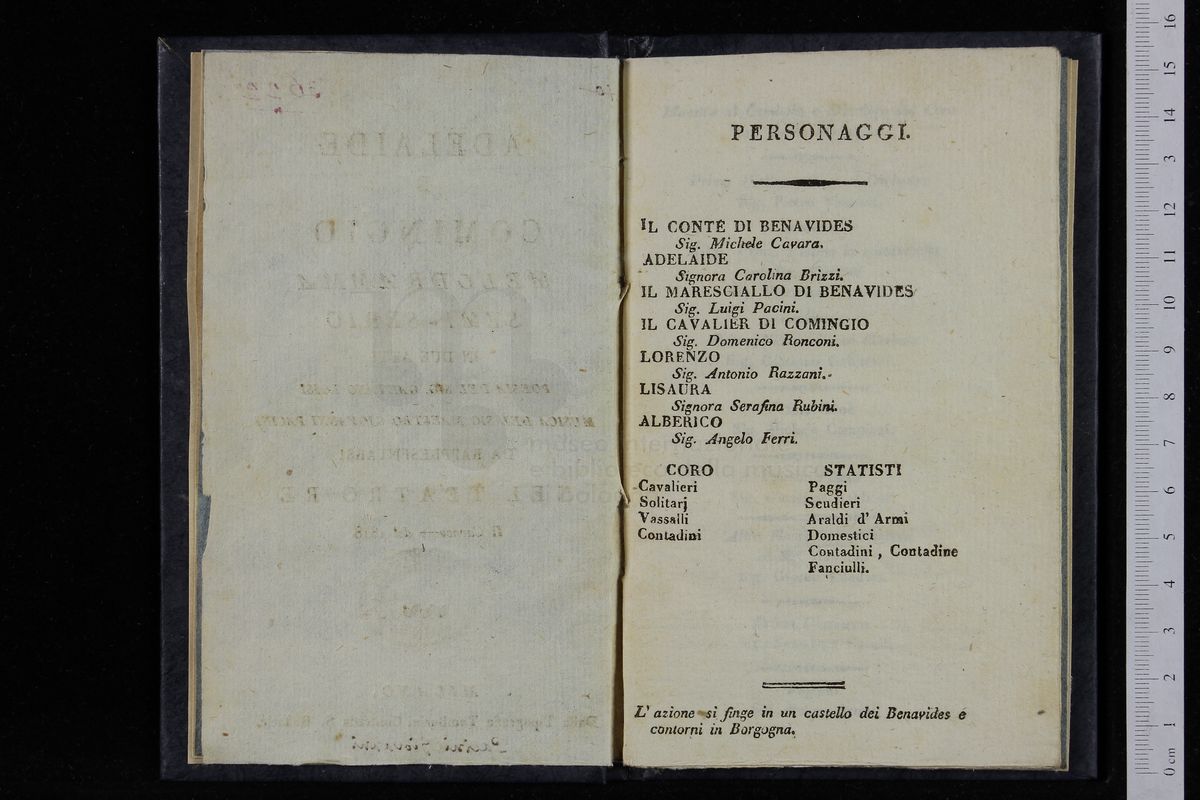 PERSONAGGI.
IL CONTE DI BENAVIDES
Sig. Michele Cavara.
ADELAIDE
Signora Carolina Brizzi.
IL MARESCIALLO DI BENAVIDES
Sig. Luigi Pacini.
IL CAVALIER DI COMINGIO
Sig. Domenico Ronconi.
LORENZO
Sig. Antonio Razzani.
LISAURA
Signora Serafina Rubini.
ALBERICO
Sig. Angelo Ferri.
CORO
Cavalieri
Solitarj
Vassalli
Contadini
STATISTI
Paggi
Scudieri
Araldi d' Armi
Domestici
Contadini , Contadine
Fanciulli.
L' azione si finge in un castello dei Benavides e
contorni in Borgogna.
ADELAIDE
COMINGIO
MELODRAMMA
SEMI-SERIO
IN DUE ATTI
0 cm 1 2 3 4 5 6 7 8 9 10 11 12 13 14 15 16